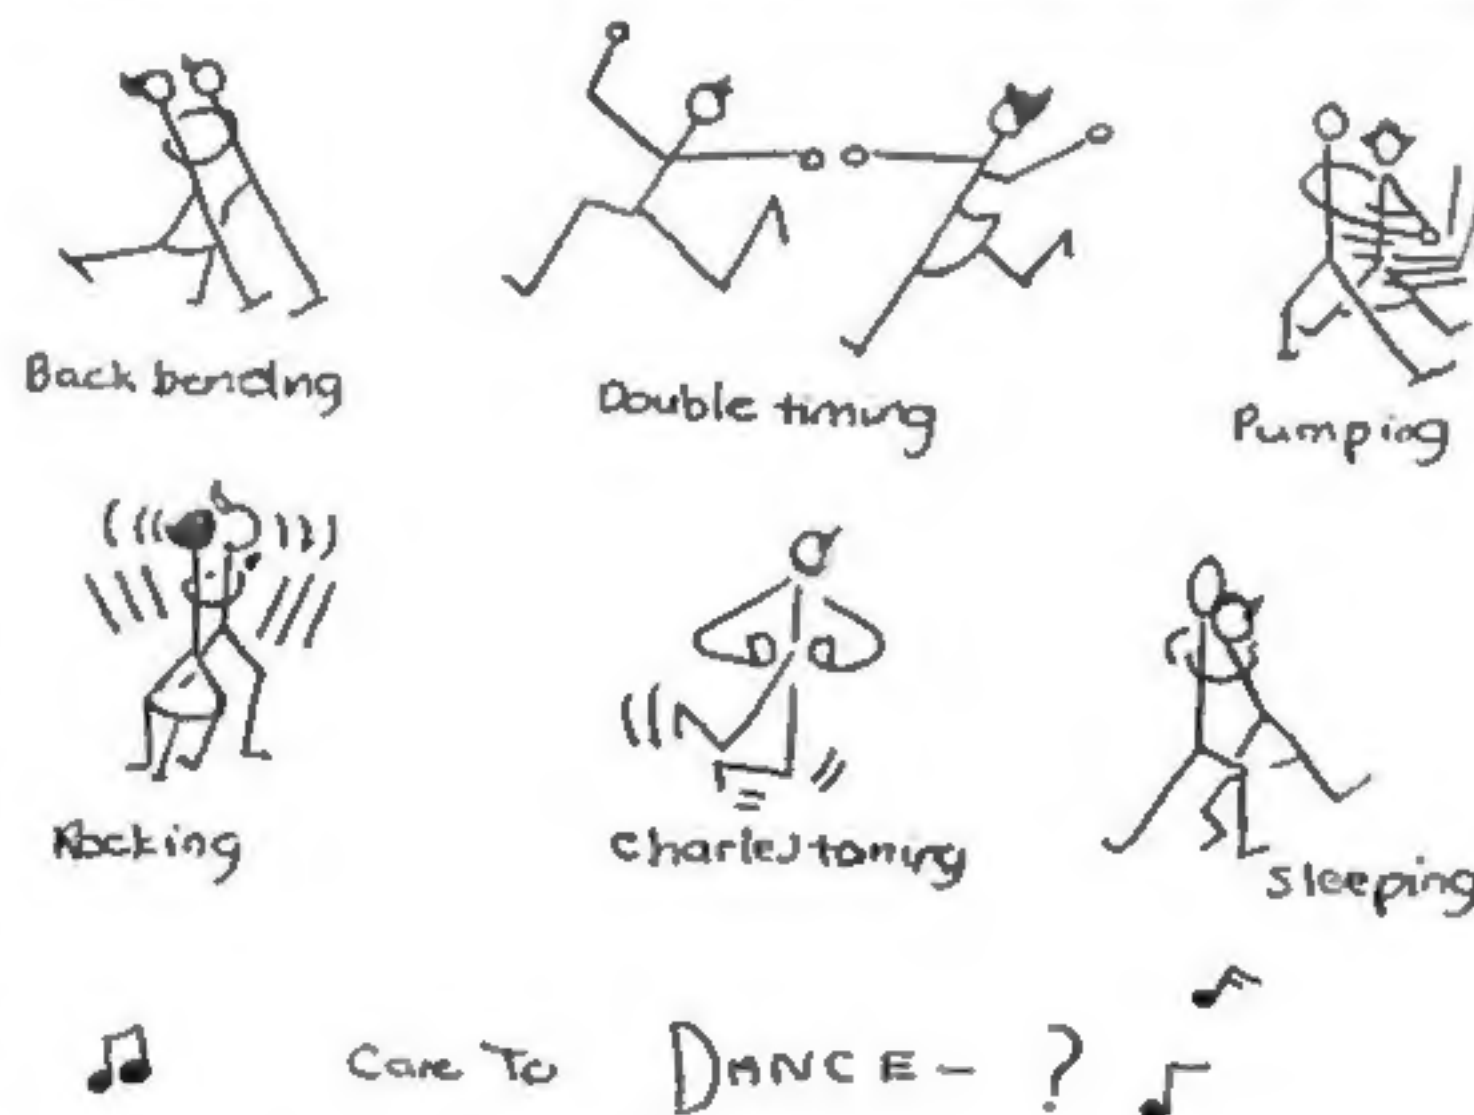 Back bending
Double timing
Pumping
Rocking
Charlestoning
Sleeping
Care To DANCE - ?